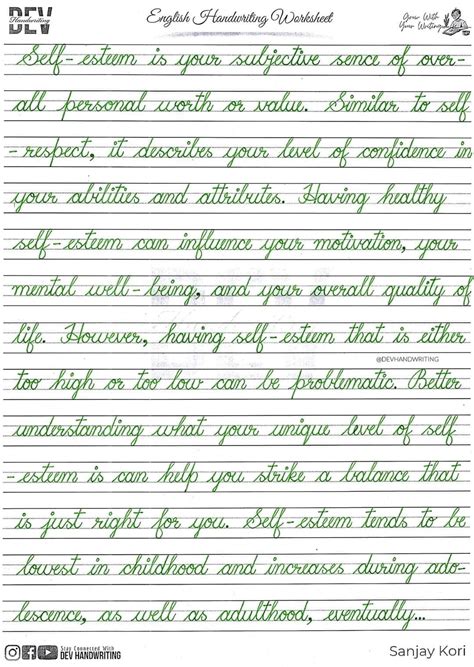 DEV
Handwriting
English Handwriting Worksheet
Grow With
Your Writing
Self-esteem is your subjective sence of over-
all personal worth or value. Similar to self
-respect, it describes your level of confidence in
your abilities and attributes. Having healthy
self-esteem can influence your motivation, your
mental well-being, and your overall quality of
life. However, having self-esteem that is either
@DEVHANDWRITING
too high or too low can be problematic. Better
understanding what your unique level of self
-esteem is can help you strike a balance that
is just right for you. Self-esteem tends to be
lowest in childhood and increases during ado-
lescence, as well as adulthood, eventually...
Stay Connected With
DEV HANDWRITING
Sanjay Kori